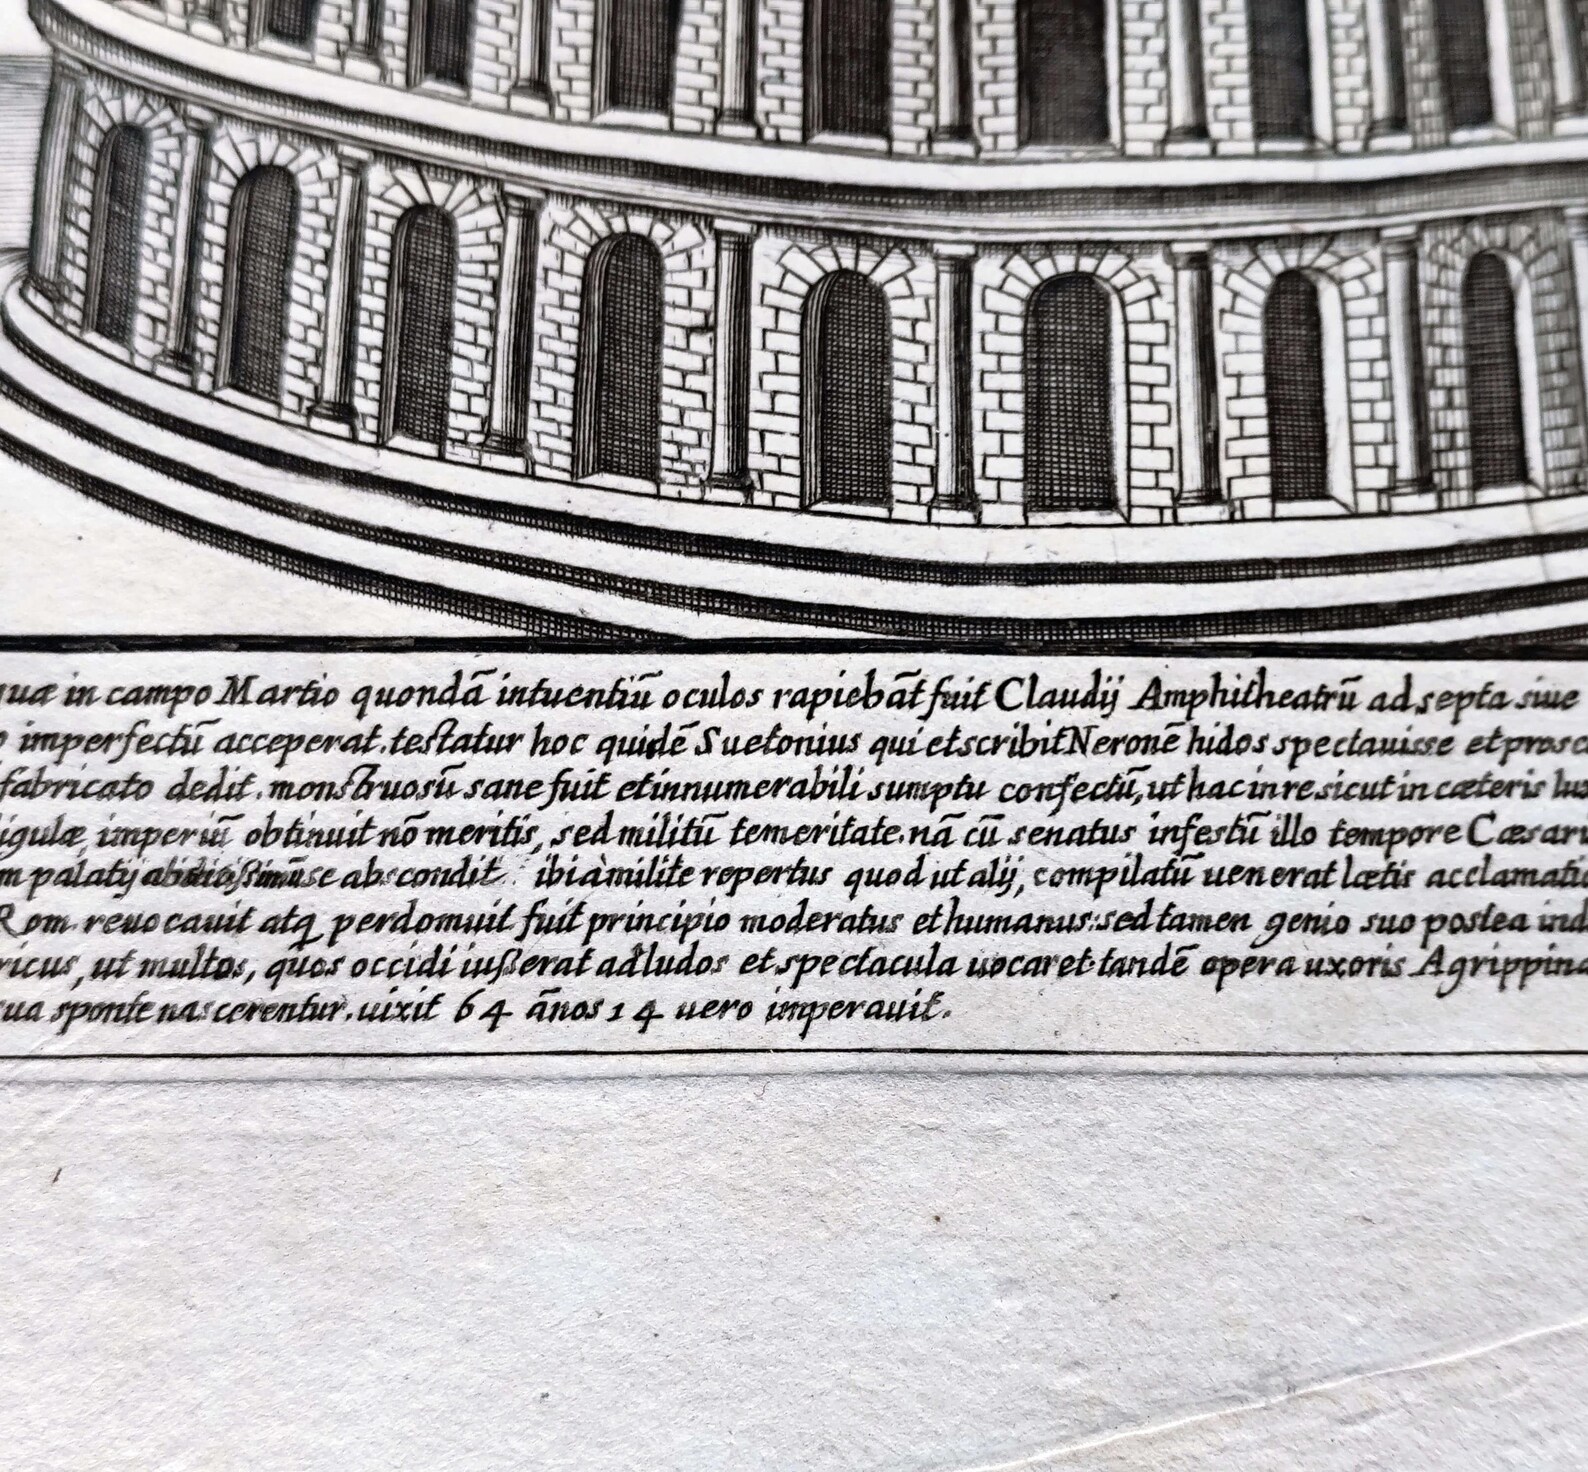 quæ in campo Martio quondā intuentiū oculos rapiebāt fuit Claudij Amphitheatrū ad septa siue
o imperfectū acceperat. testatur hoc quidē Suetonius qui et scribit Neronē hidos spectauisse et prosc
fabricato dedit. monstruosū sane fuit et innumerabili sumptu confectū, ut hac in re sicut in cæteris lux
ligulæ, imperiū obtinuit nō meritis, sed militū temeritate. nā cū senatus infestū illo tempore Cæsari
m palatij se abscondit ibi à milite repertus quod ut alij, compilatū uenerat lætis acclamatio
Rom. reuocauit atq perdomuit fuit principio moderatus et humanus: sed tamen genio suo postea ind
ricus, ut multos, quos occidi iusserat ad ludos et spectacula uocaret. tandē opera uxoris Agrippina
sua sponte nascerentur. uixit 64 ānos 14 uero imperauit.